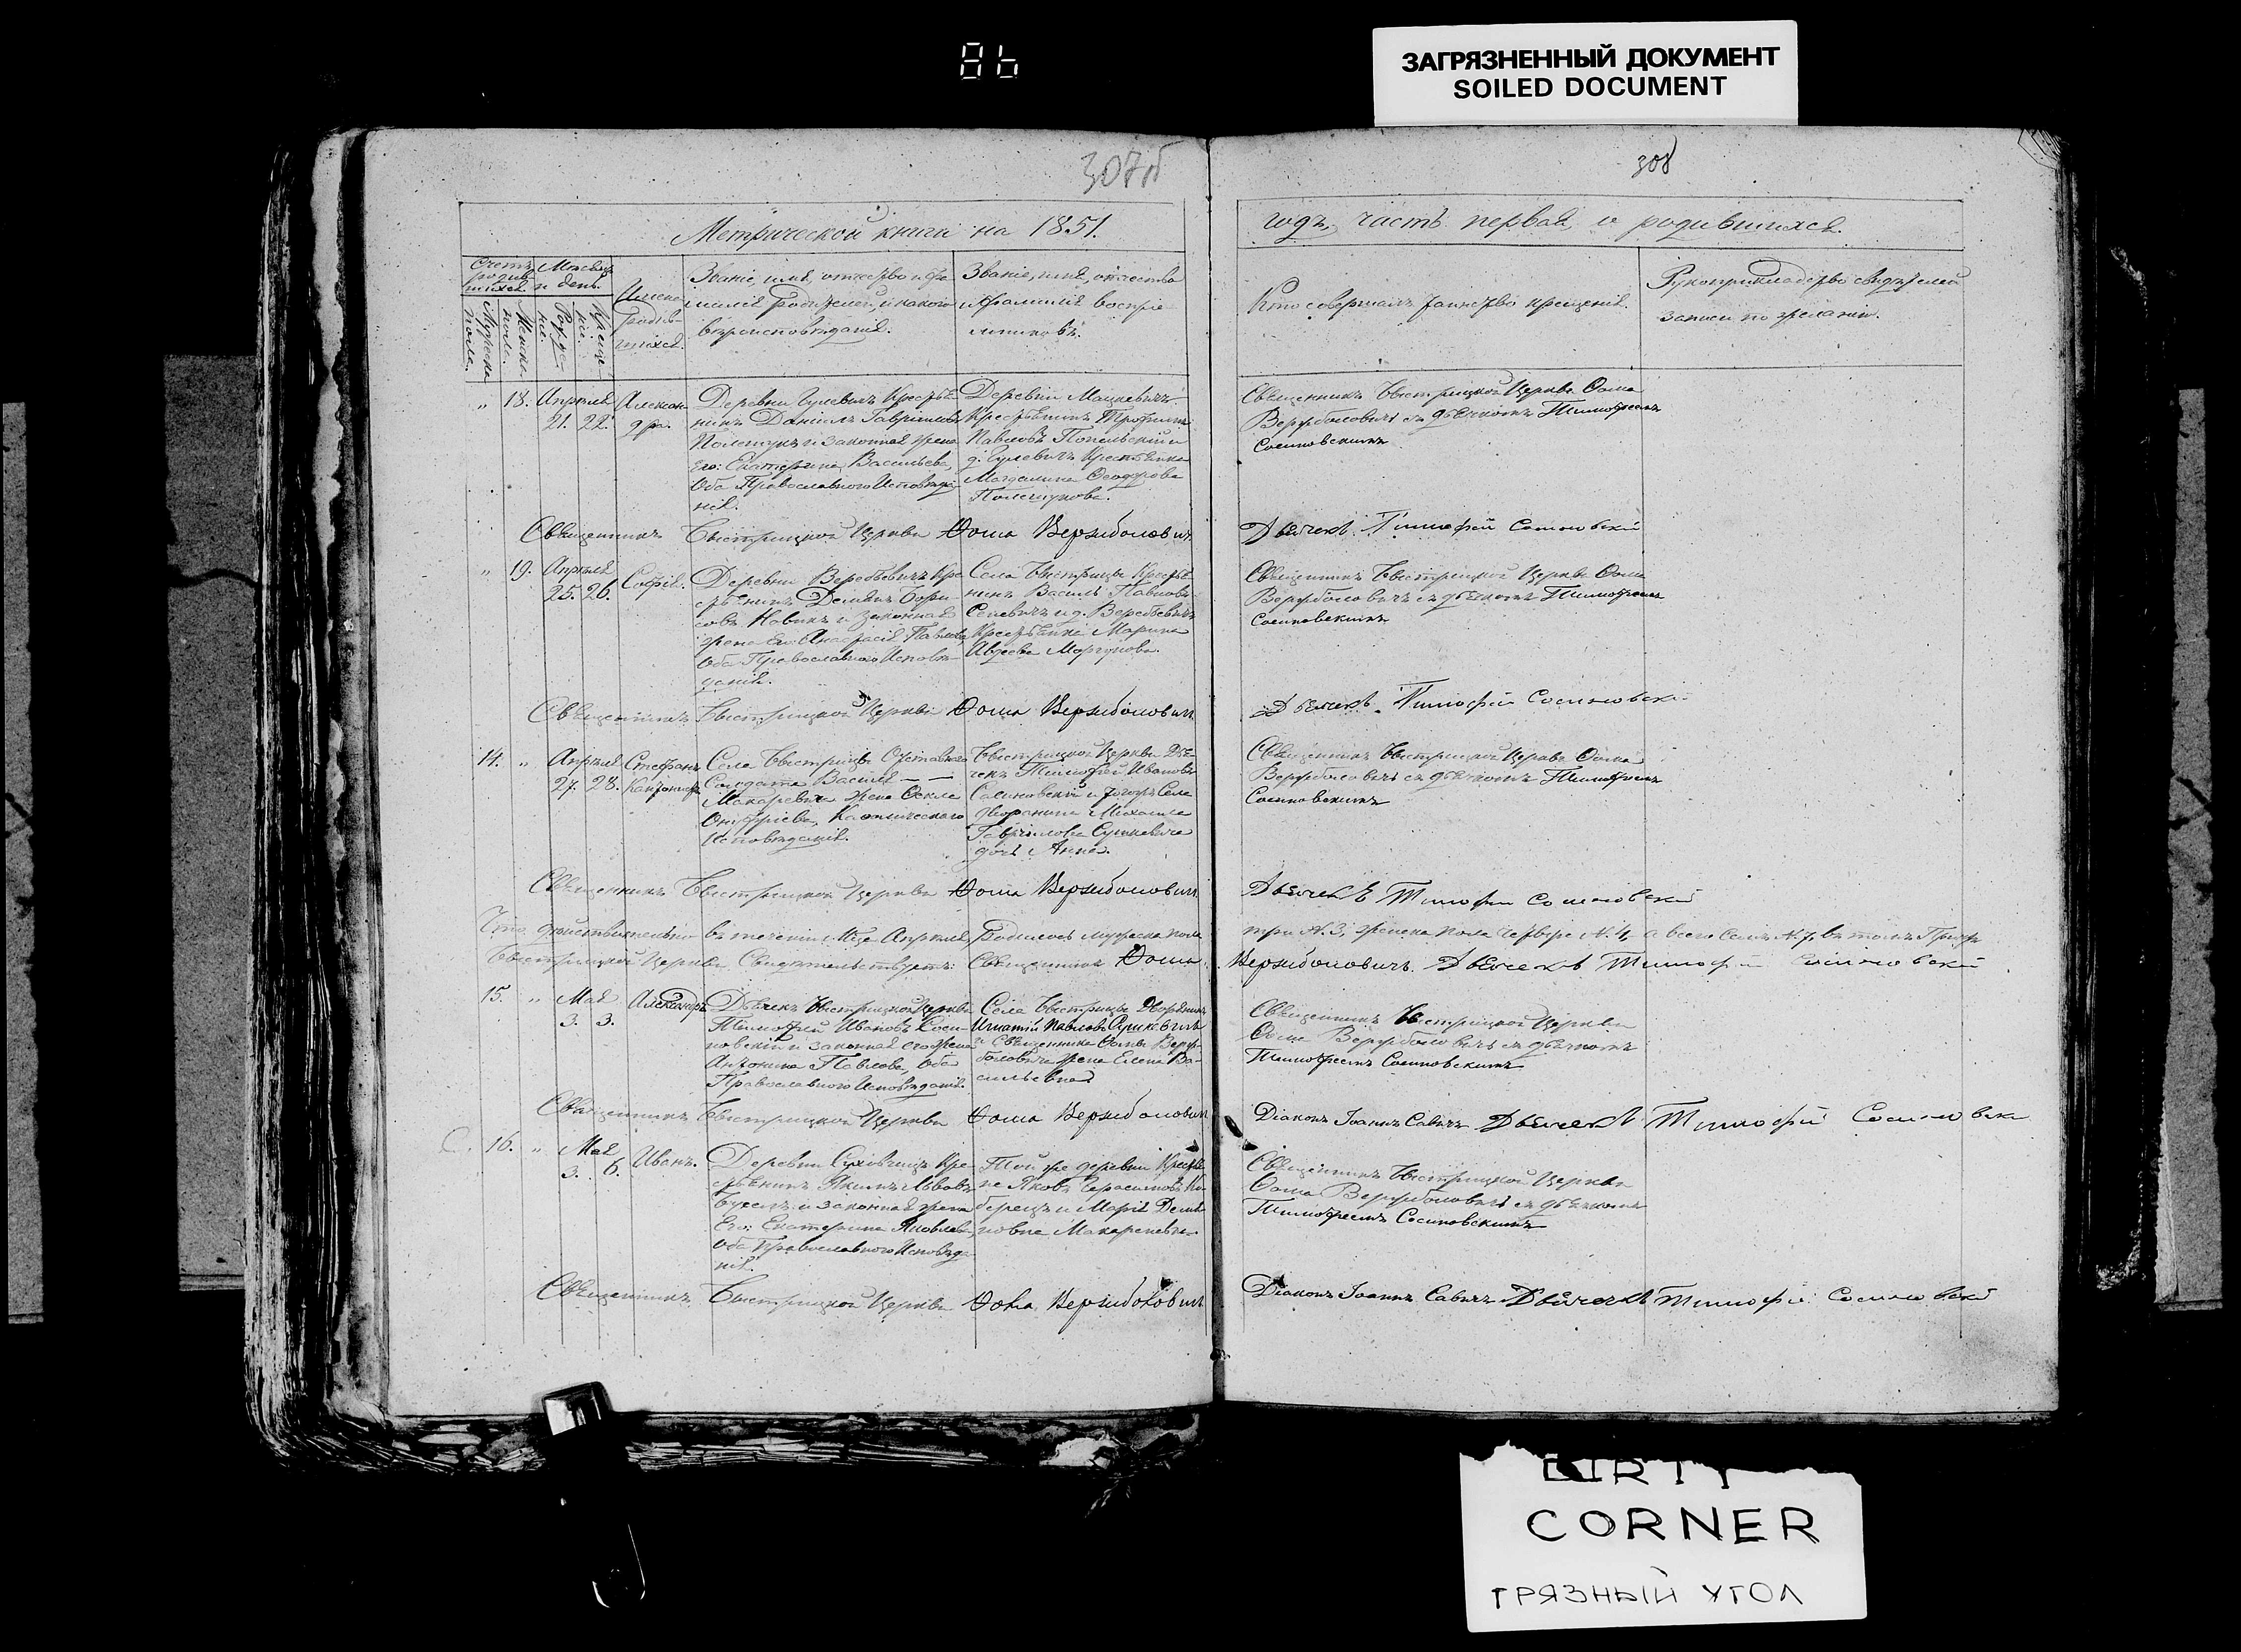 86
ЗАГРЯЗНЕННЫЙ ДОКУМЕНТ
SOILED DOCUMENT
307
308
Метрической книги на 1851.
годъ, часть первая, о родившихся.
Счетъ родив-шихся.
Мужеска пола.
Женска пола.
Мѣсяцъ и день.
Рожде-нія.
Креще-нія.
Имена родив-шихся.
Званіе, имя, отчество и фа-
милія родителей, и какого
вѣроисповѣданія.
Званіе, имя, отчество
и фамилія воспріе-
мниковъ.
Кто совершалъ таинство крещенія.
Рукоприкладство свидѣтелей
записи по желанію.
" 18. Апрѣля 21. 22. Алексан-
дра.
Деревни Гулевичъ Крестья-
нинъ Даніилъ Гавріиловъ
Полещукъ и законная жена
Его: Екатерина Васильева,
Оба Православного Исповѣда-
нія.
Деревни Мацкевичъ
Крестьянинъ Трофимъ
Павловъ Попельскій и
д. Гулевичъ Крестьянка
Магдалина Феодорова
Полещукова.
Священникъ Быстрицкой Церкви Фома
Вержболовичъ съ дьячкомъ Тимофеемъ
Сосиновскимъ
Священникъ Быстрицкой Церкви Фома Вержболовичъ
Дьячекъ Тимофей Сосиновскій
" 19. Апрѣля 25. 26. Софія.
Деревни Веребьевичъ Кре-
стьянинъ Демьянъ Бори-
совъ Новикъ и законная
жена Его Анастасія Павлова,
Оба Православного Исповѣ-
данія.
Села Быстрицы Крестья-
нинъ Василь Павловъ
Сеневичъ и д. Веребьевичъ
Крестьянка Марина
Авдеева Моргунова.
Священникъ Быстрицкой Церкви Фома
Вержболовичъ съ дьячкомъ Тимофеемъ
Сосиновскимъ
Священникъ Быстрицкой Церкви Фома Вержболовичъ
Дьячекъ Тимофей Сосиновскі
14. " Апрѣля 27. 28. Стефанъ
Кантонистъ
Села Быстрицы Отставного
Солдата Василія — —
Макаревича жена Фекла
Онуфріева, Католического
Исповѣданія.
Быстрицкой Церкви Дья-
чекъ Тимофей Ивановъ
Сосиновскій и тогожъ Села
дворянина Михаила
Гаврилова Сушкевича
дочь Анна.
Священникъ Быстрицкой Церкви Фома
Вержболовичъ съ дьячкомъ Тимофеемъ
Сосиновскимъ
Священникъ Быстрицкой Церкви Фома Вержболовичъ
Дьячекъ Тимофей Сосиновскій
Что дѣйствительно въ теченіи Мца Апрѣля, Родилось мужеска пола
три №.3, женска пола четыре №.4, а всего семь №.7, въ томъ
Быстрицкой Церкви Свидѣтельствуетъ: Священникъ Фома
Вержболовичъ. Дьячекъ Тимофей Сосиновскій
15. " Мая 3. 3. Александръ
Дьячекъ Быстрицкой Церкви
Тимофей Ивановъ Соси-
новскій и законная его жена
Антонина Павлова, Оба
Православного Исповѣданія.
Села Быстрицы Дворянинъ
Игнатій Павловъ Сушкевичъ
и Священника Фомы Верж-
боловича жена Елена Ва-
сильевна
Священникъ Быстрицкой Церкви
Фома Вержболовичъ съ дьячкомъ
Тимофеемъ Сосиновскимъ
Священникъ Быстрицкой Церкви Фома Вержболовичъ
Діаконъ Іоаннъ Савичъ Дьячекъ Тимофей Сосиновскі
16. " Мая 3. 6. Иванъ.
Деревни Суховчицъ Кре-
стьянинъ Якимъ Львовъ
и законная жена
Его: Екатерина Яковлева,
Оба Православного Исповѣда-
нія.
Той же деревни Крестья-
не Яковъ Герасимовъ
и Марія Демья-
новна Макаревичъ.
Священникъ Быстрицкой Церкви
Фома Вержболовичъ съ дьячкомъ
Тимофеемъ Сосиновскимъ
Священникъ Быстрицкой Церкви Фома Вержболовичъ
Діаконъ Іоаннъ Савичъ Дьячекъ Тимофей Сосиновскій
DIRTY
CORNER
ГРЯЗНЫЙ УГОЛ